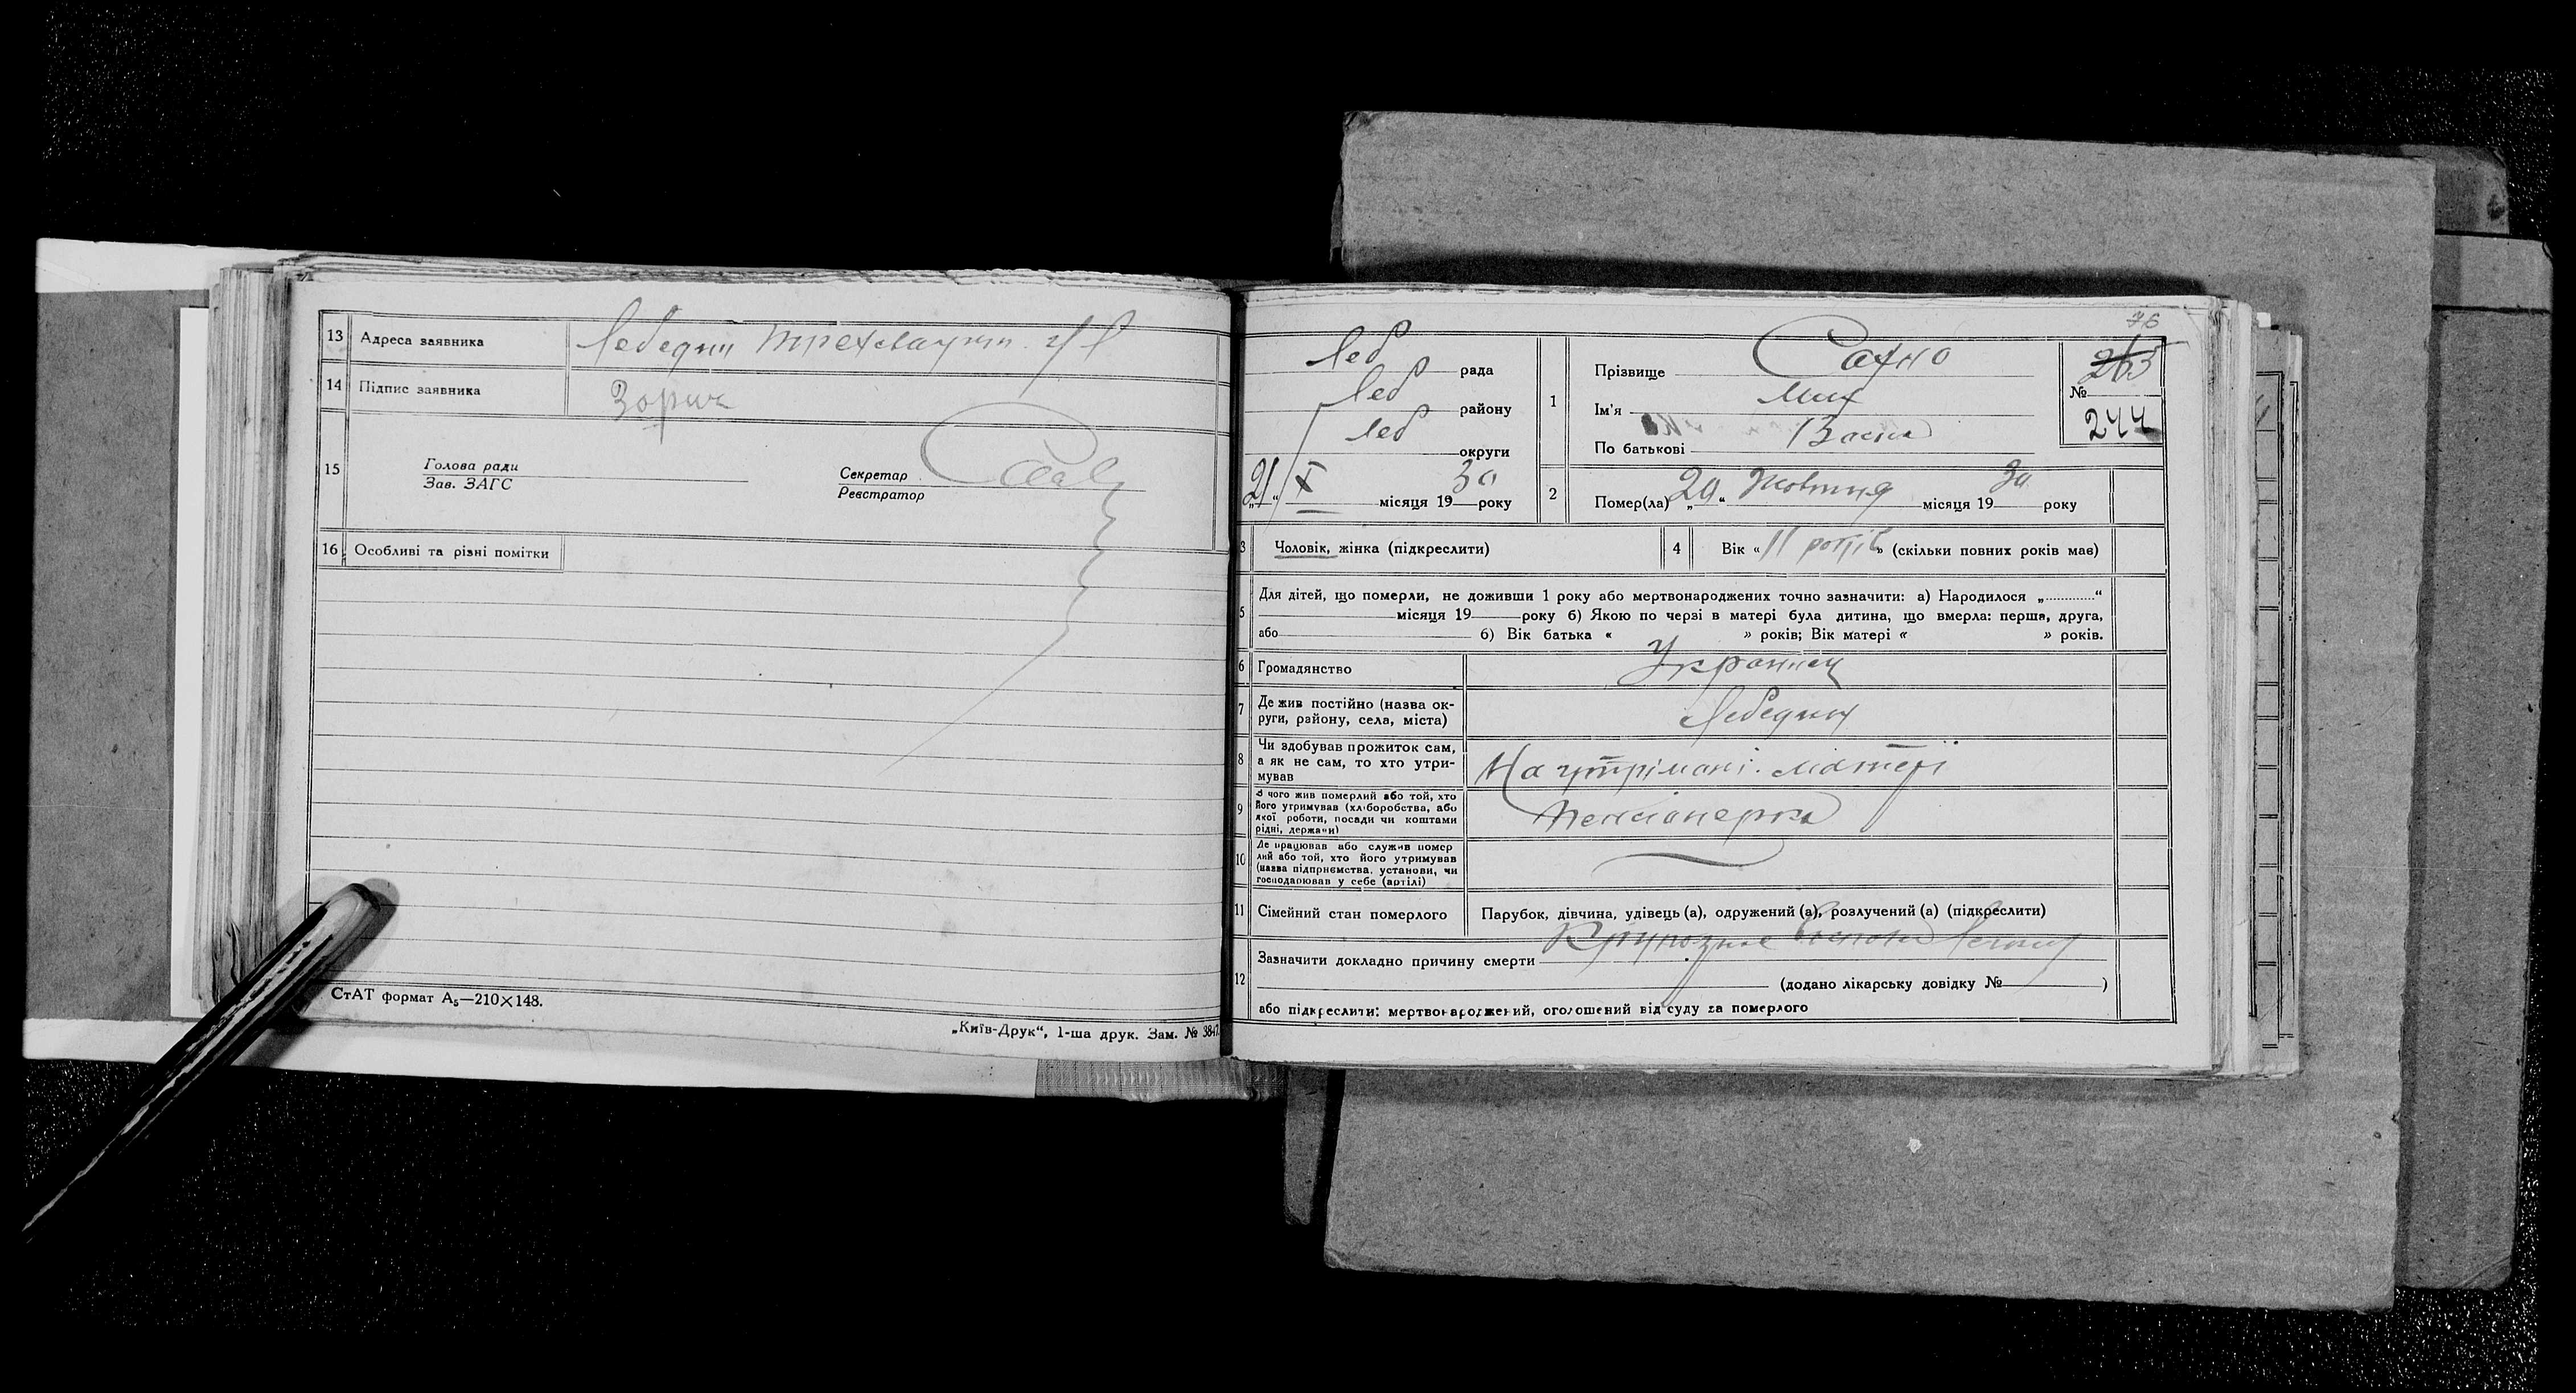 13 Адреса заявника Лебедин
14 Підпис заявника Зорич
15 Голова ради
Зав. ЗАГС
Секретар
Реєстратор
16 Особливі та різні помітки
СтАТ формат А₅—210×148.
„Київ-Друк“, 1-ша друк. Зам. № 3847
76
Леб рада
Леб району
Леб округи
„21“ X місяця 1930 року
1 Прізвище Сахно
Ім'я Мих
По батькові Васил
263
№
244
2 Помер(ла) „20“ Жовтня місяця 1930 року
3 Чоловік, жінка (підкреслити)
4 Вік «11 років» (скільки повних років має)
5 Для дітей, що померли, не доживши 1 року або мертвонароджених точно зазначити: а) Народилося „............“
місяця 19 року б) Якою по черзі в матері була дитина, що вмерла: перша, друга,
або б) Вік батька « » років; Вік матері « » років.
6 Громадянство Українец
7 Де жив постійно (назва ок-
руги, району, села, міста) Лебедин
8 Чи здобував прожиток сам,
а як не сам, то хто утри-
мував На утрімані матері
9 З чого жив померлий або той, хто
його утримував (хліборобства, або
якої роботи, посади чи коштами
рідні, держави) Пенсіонерка
10 Де працював або служив помер
лий або той, хто його утримував
(назва підприємства, установи, чи
господарював у себе (артілі)
11 Сімейний стан померлого Парубок, дівчина, удівець (а), одружений (а), розлучений (а) (підкреслити)
12 Зазначити докладно причину смерти Крупозне
(додано лікарську довідку № )
або підкреслити: мертвонароджений, оголошений від суду за померлого